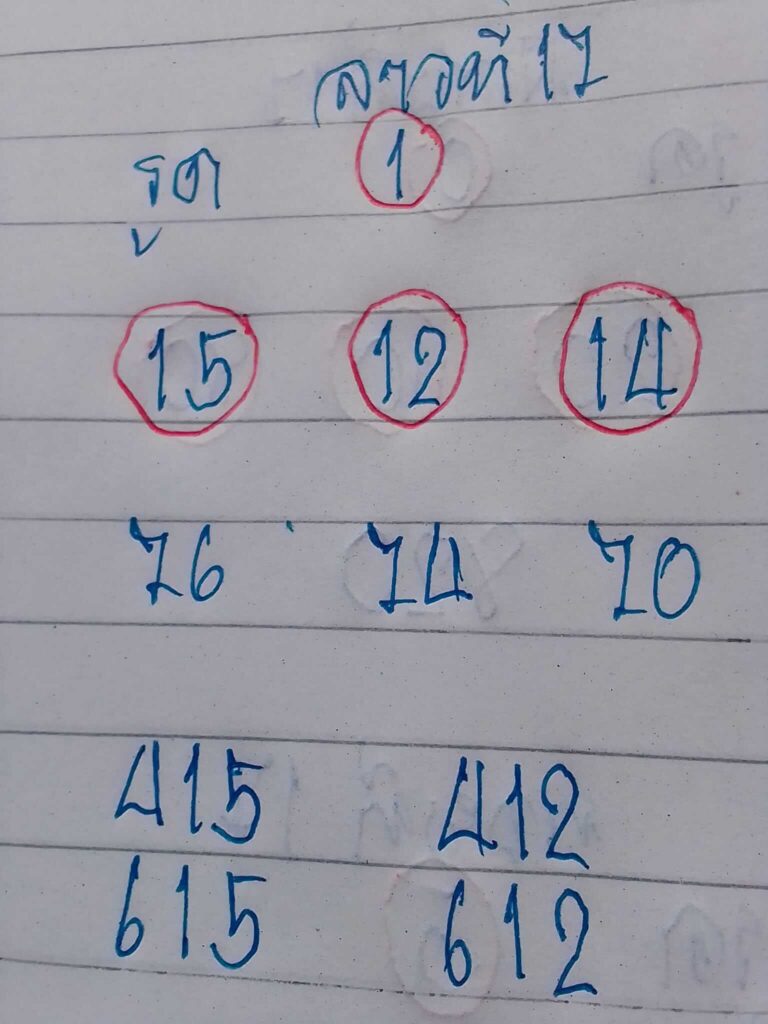 ลาวที่ 17
รูด 1
15 12 14
76 74 70
415 412
615 612